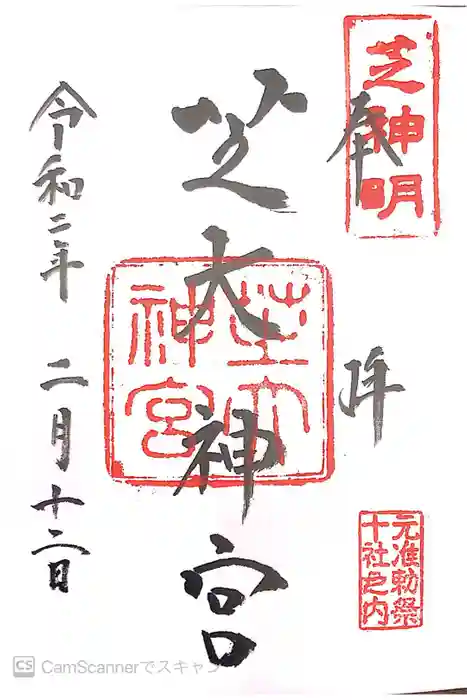 奉拝
芝神明
元准勅祭
十社之内
芝大神宮
芝大
神宮
令和二年 二月十二日
CS CamScannerでスキャン